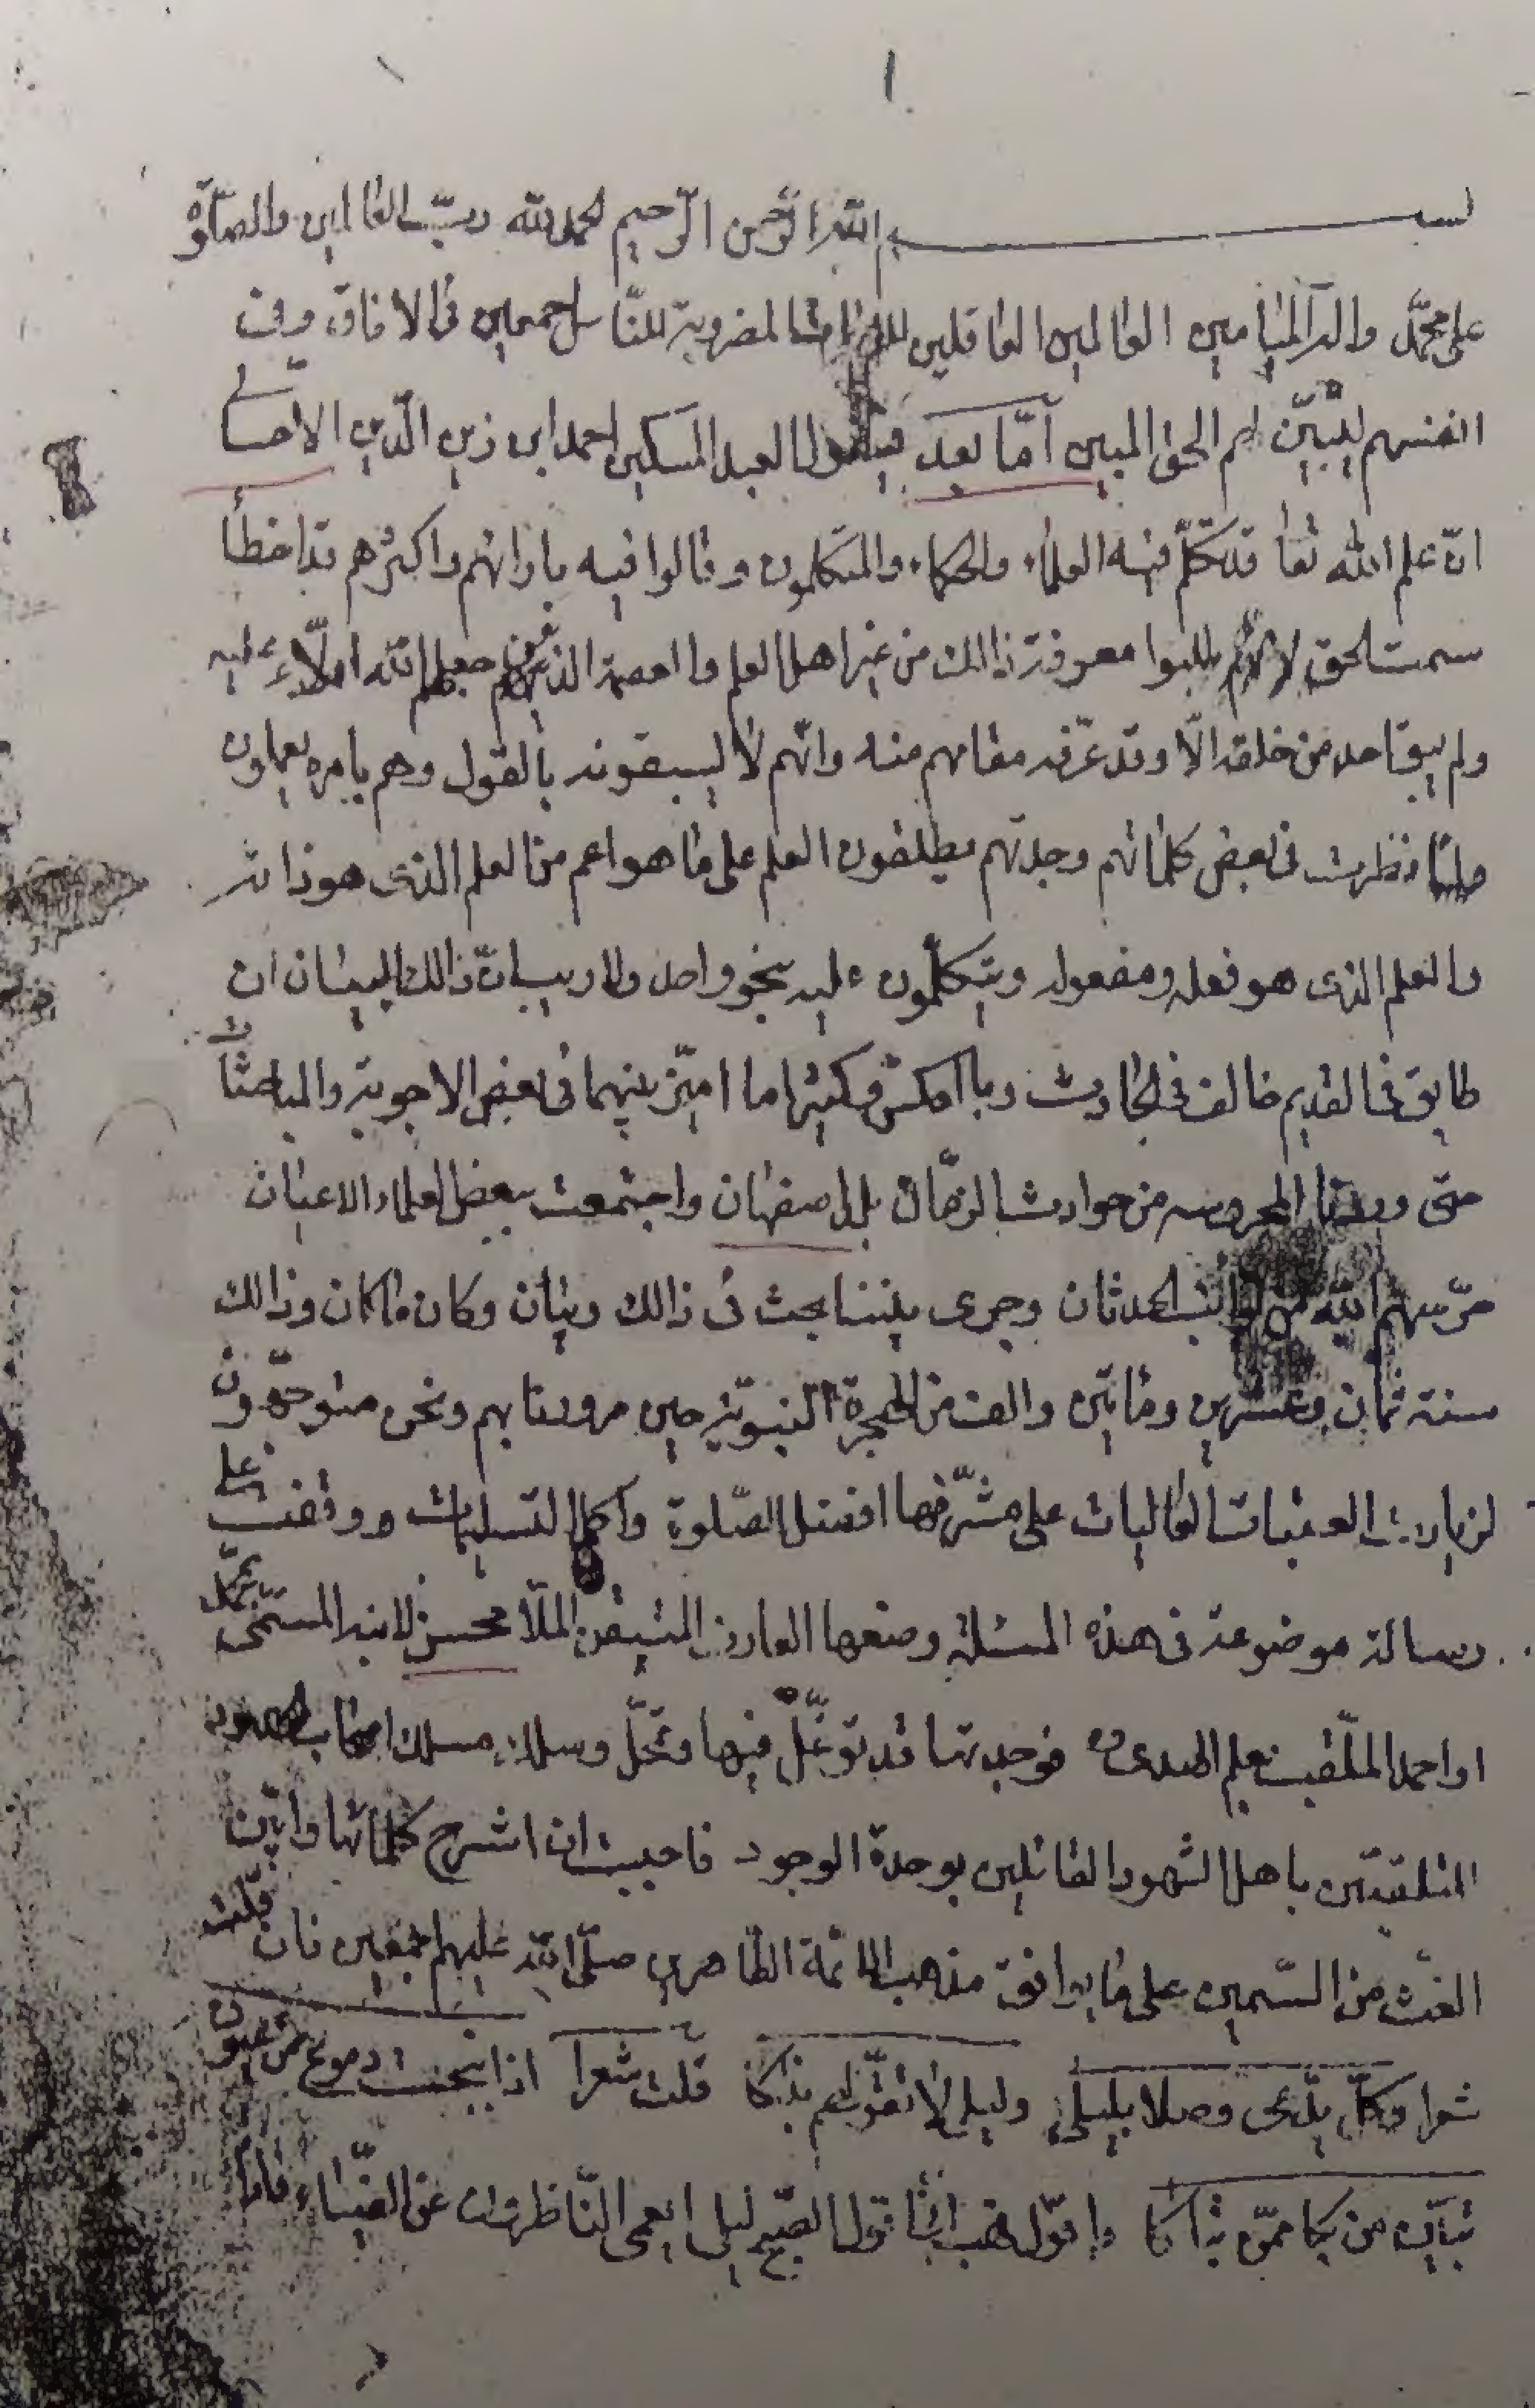 ١
بسم الله الرحمن الرحيم الحمد لله ربّ العالمين والصّلوة
على محمّد واله الميامين العالمين العاقلين للامثال المضروبة للنّاس اجمعين في الافاق وفي
انفسهم ليتبيّن لهم الحق المبين أمّا بعد فيقول العبد المسكين احمد ابن زين الدّين الاحسائي
انّ علم الله تعا قد تكلّم فيه العلماء والحكماء والمتكلمون وقالوا فيه بارائهم واكثرهم قد اخطأ
سمت الحق لانّهم طلبوا معرفة ذالك من غير اهل العلم والعصمة الذين جعلهم الله ادلّاء عليه
ولم يبق احد من خلقه الّا وقد عرّفه مقامهم منه وانّهم لا يسبقونه بالقول وهم بامره يعملون
ولمّا نظرت في بعض كلماتهم وجدتهم يطلقون العلم على ما هو اعم من العلم الذى هو ذاته
والعلم الذى هو فعله ومفعوله ويتكلّمون عليه بنحو واحد ولا ريب انّ ذالك البيان ان
طابق في القديم خالف في الحادث وبالعكس وكثيرا ما اميّز بينهما في بعض الاجوبة والمباحثات
حتى وردنا المحروسه من حوادث الزمان بلد اصفهان واجتمعت ببعض العلماء الاعيان
حرّسهم الله من نوائب الحدثان وجرى بيننا بحث في ذالك وبيان وكان ما كان وذالك
سنة ثمان وعشرين ومأتين والف من الهجرة النبويّة حين مرورنا بهم ونحن متوجّهون
لزيارت العتبات العاليات على مشرّفها افضل الصّلوة واكمل التسليمات ووقفت على
رسالة موضوعة في هذه المسئلة وضعها العارف المتيقن الملّا محسن لابنه المسمّى بمحمّد
او احمد الملّقب بعلم الهدى فوجدتها قد توغّل فيها وتمحّل وسلك مسلك اصحاب
المتلقبين باهل الشهود القائلين بوحدة الوجود فاحببت ان اشرح كلماتها وابيّن
الغثّ من السّمين على ما يوافق مذهب الائمة الطّاهرين صلّى الله عليهم اجمعين فان قلت
شعرا وكلّ يدّعى وصلا بليلى وليلى لا تقرّ لهم بذاكا قلت شعرا اذا انبجست دموع من عيون
تبيّن من بكا ممّن تباكا واقول فهب انّى اقول الصّبح ليل ايعمى النّاظرون عن الضّياء فاذا